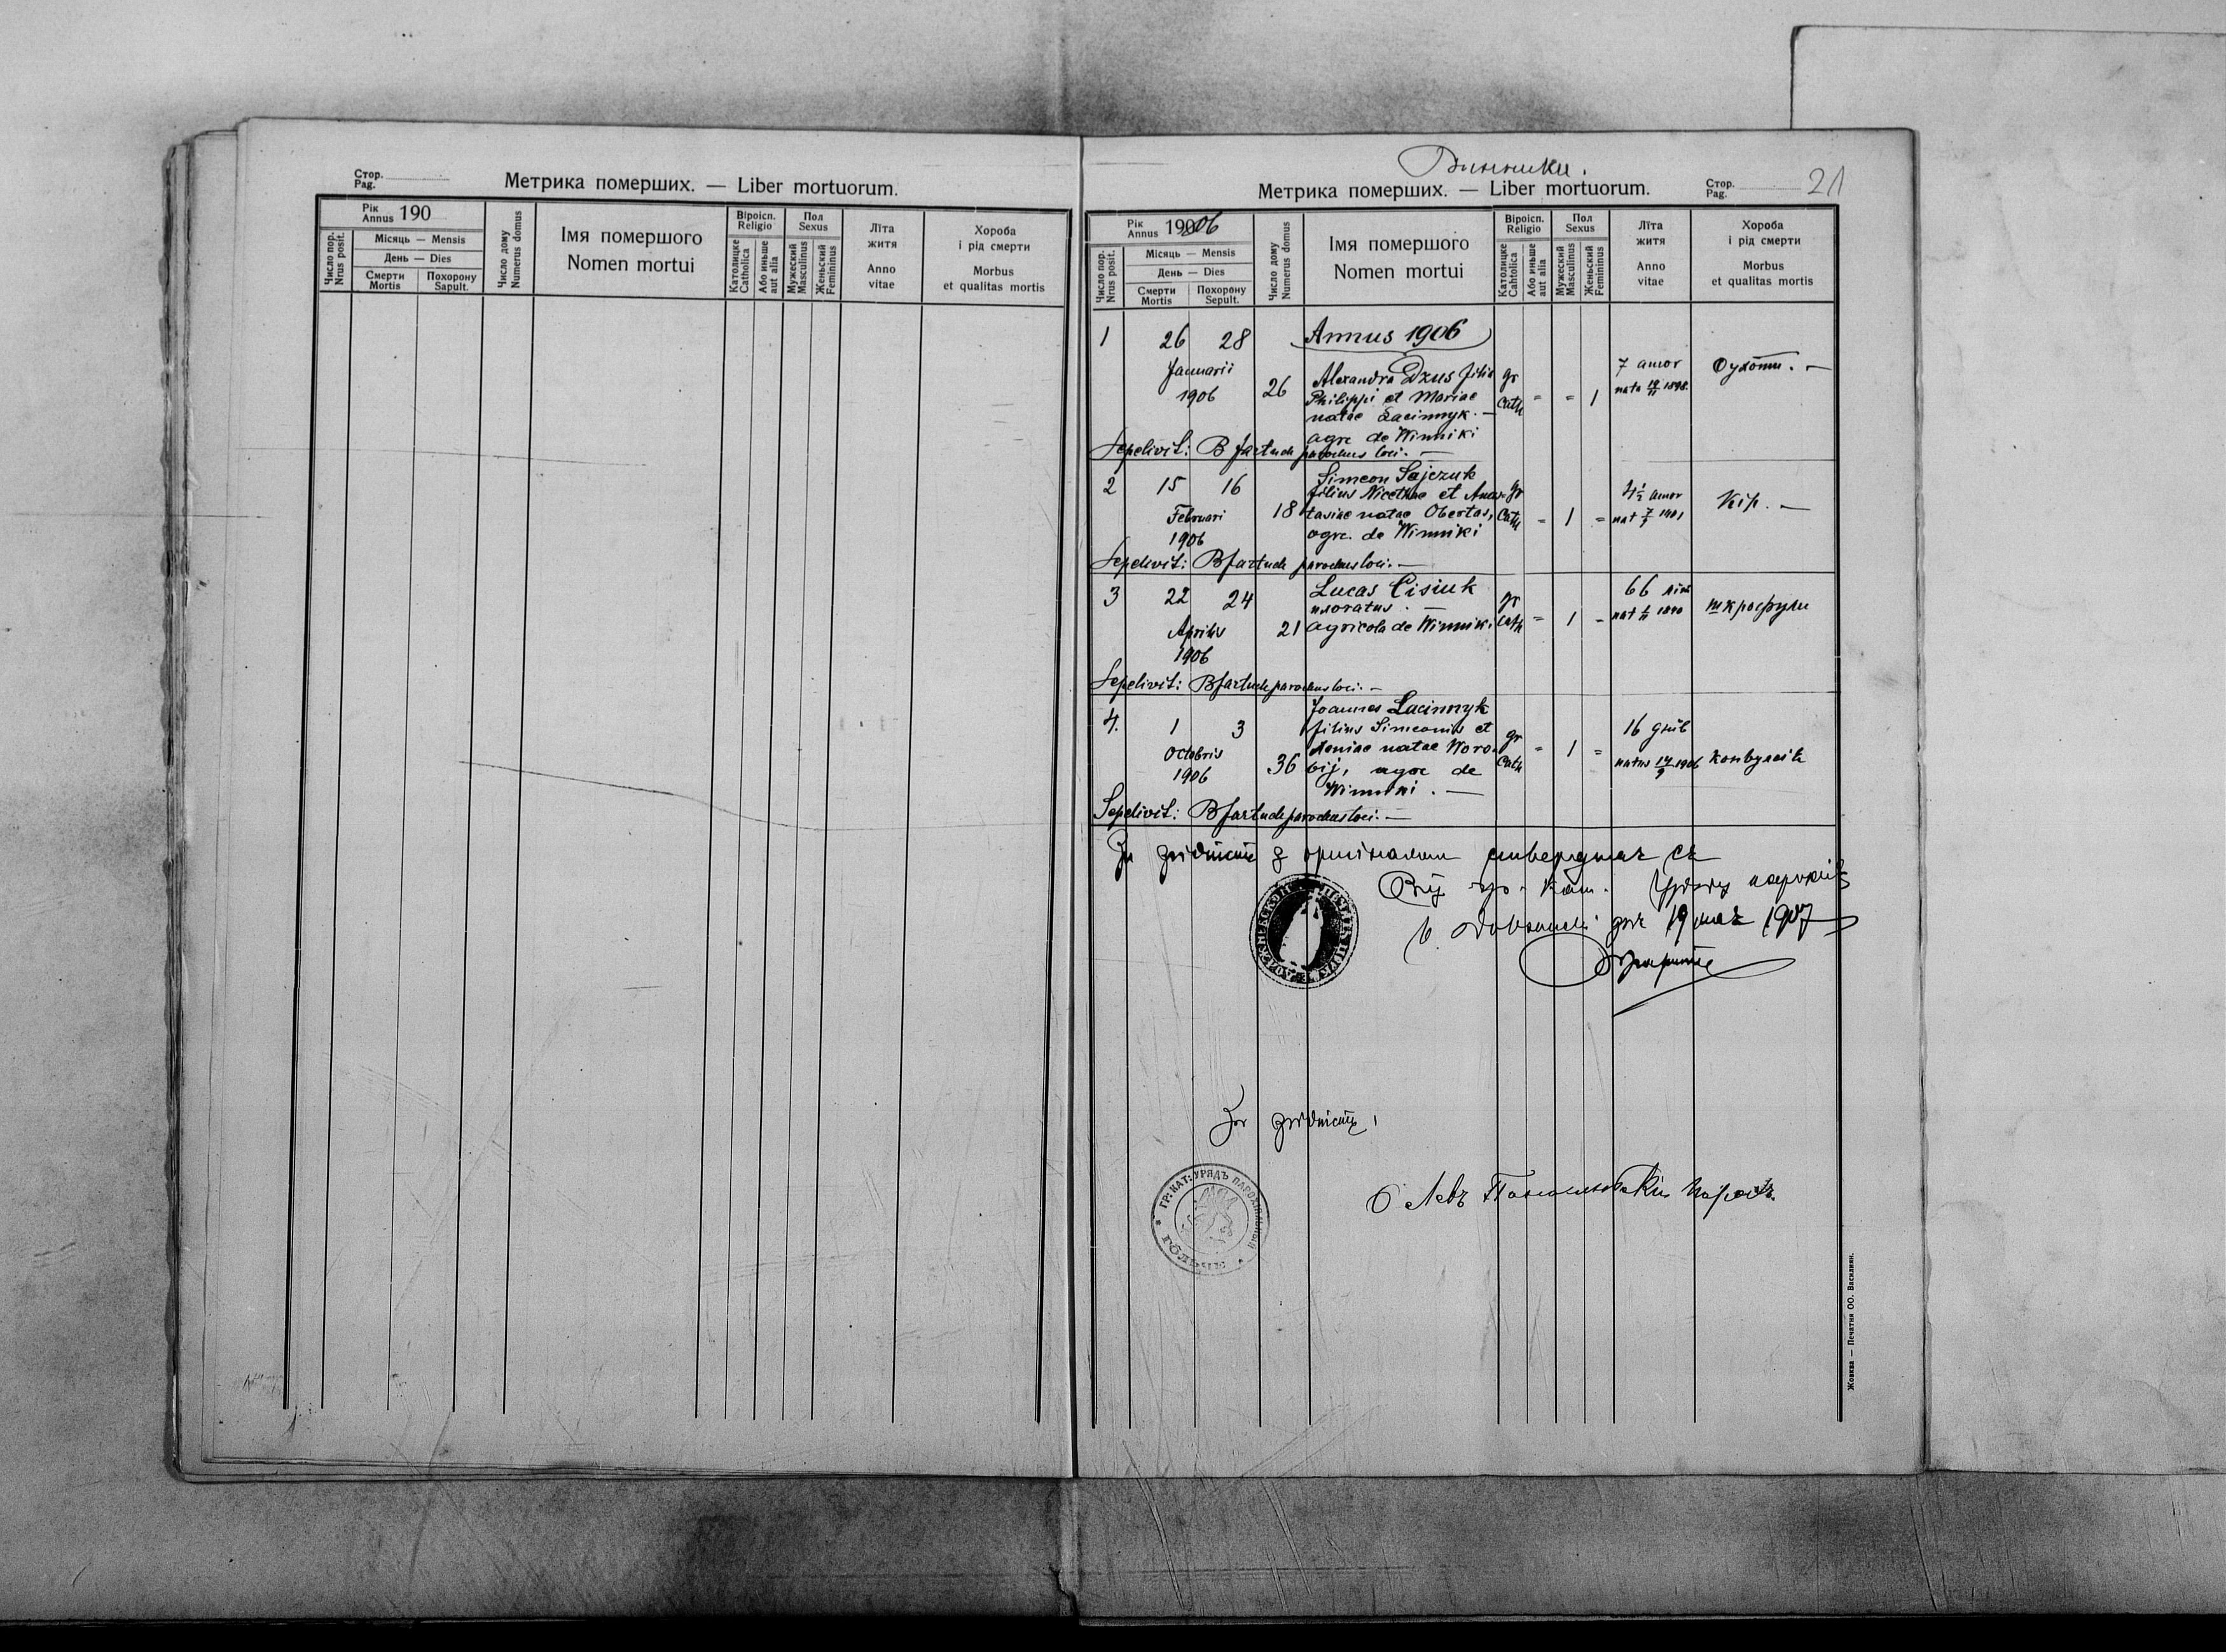 Стор.
Pag.
Метрика померших. — Liber mortuorum.
Рік
Annus 190
Місяць — Mensis
День — Dies
Смерти
Mortis
Похорону
Sapult.
Число пор.
Nrus posit.
Число дому
Numerus domus
Імя помершого
Nomen mortui
Віроісп.
Religio
Католицке
Catholica
Або иньше
aut alia
Пол
Sexus
Мужеский
Masculinus
Женьский
Femininus
Лїта
житя
Anno
vitae
Хороба
і рід смерти
Morbus
et qualitas mortis
Винники.
Метрика померших. — Liber mortuorum.
Стор.
Pag.
21
Рік
Annus 1906
Місяць — Mensis
День — Dies
Смерти
Mortis
Похорону
Sepult.
Число пор.
Nrus posit.
Число дому
Numerus domus
Імя помершого
Nomen mortui
Віроісп.
Religio
Католицке
Cahtolica
Або иньше
aut alia
Пол
Sexus
Мужеский
Masculinus
Женьский
Femininus
Лїта
житя
Anno
vitae
Хороба
і рід смерти
Morbus
et qualitas mortis
Annus 1906
1 26 28
Januarii
1906
26
Alexandra Dzus filia
Philippi et Mariae
natae Lacinnyk. —
agr. de Winniki
gr
Cath = = 1
7 annor
nata 1898.
Сухоты. —
Sepelivit: B parochus loci. —
2 15 16
Februari
1906
18
Simeon Sajczuk
filius Nicethae et Anas-
tasiae natae Obertas,
agr. de Winniki
gr
Cath = 1 =
4½ annor
nat 7/9 1901
Кір. —
Sepelivit: B parochus loci. —
3 22 24
Aprilis
1906
21
Lucas Cisiuk
uxoratus. —
agricola de Winniki
gr
Cath = 1 =
66 лїт
nat 1840
шкрофули
Sepelivit: B parochus loci. —
4. 1 3
Octobris
1906
36
Joannes Lacinnyk
filius Simeonis et
Xeniae natae Woro-
bij, agr. de
Winniki. —
gr
Cath = 1 =
16 днів
natus 14/9 1906
конвульсія
Sepelivit: B parochus loci. —
За згідність з оригіналом стверджає ся
Від гр. кат. Уряду парохіяль
дня 19 мая 1907
За згідність,
ГР: КАТ: УРЯДЪ ПАРОХІАЛЬНЫЙ
О Левъ
Жовква — Печатня ОО. Василиян.